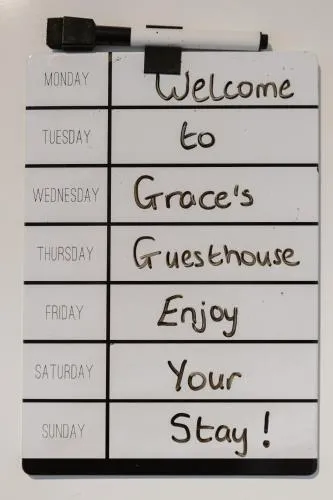 MONDAY Welcome
TUESDAY to
WEDNESDAY Grace's
THURSDAY Guesthouse
FRIDAY Enjoy
SATURDAY Your
SUNDAY Stay!